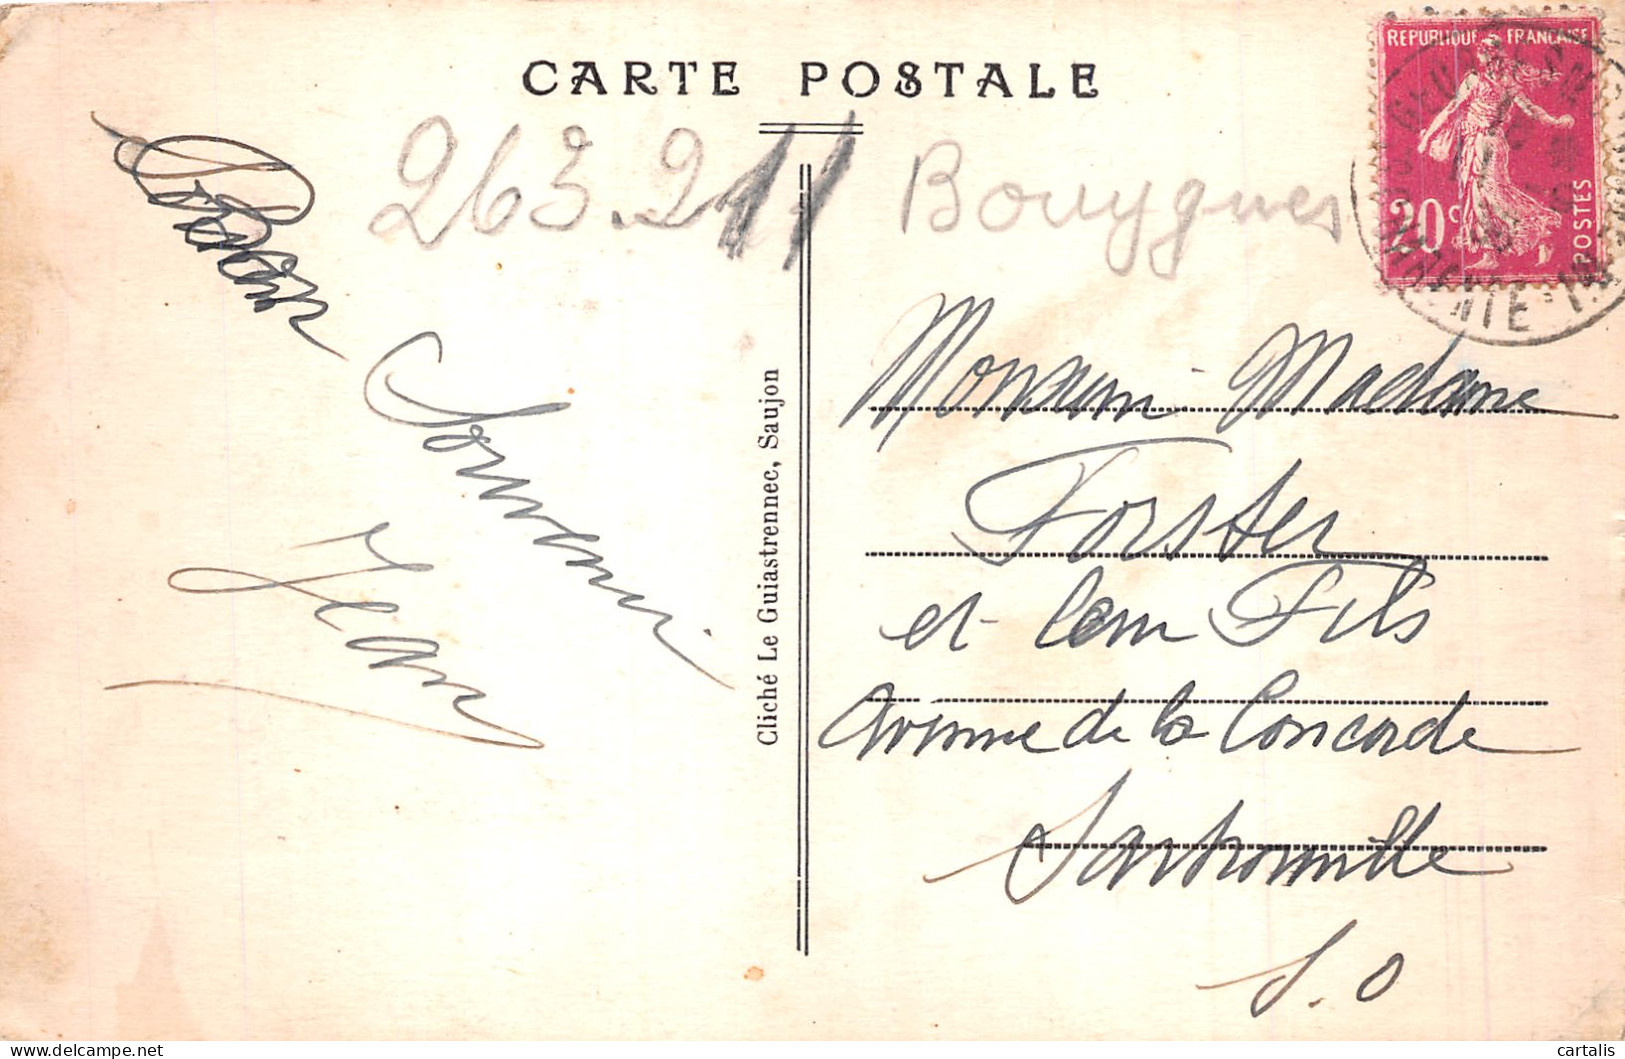 CARTE POSTALE
REPUBLIQUE FRANCAISE
20c
POSTES
263.211 Bouygues
Bon
Souvenir
Jean
Cliché Le Guiastrennec, Saujon
Monsieur Madame
Forster
et leur Fils
Avenue de la Concorde
Sartrouville
S.O
cartalis